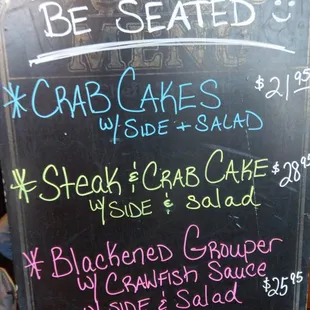 BE SEATED
MENU
* CRAB CAKES $21.95
w/ SIDE + SALAD
* Steak & CRAB CAKE $28.95
w/ SIDE & Salad
* Blackened Grouper
w/ CRAWFISH Sauce
w/ SIDE & Salad $25.95